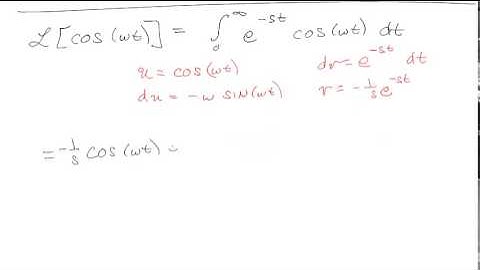 ℒ[cos(ωt)] = ∫₀^∞ e^{-st} cos(ωt) dt
u = cos(ωt) dv = e^{-st} dt
du = -ω sin(ωt) v = -1/s e^{-st}
= -1/s cos(ωt)